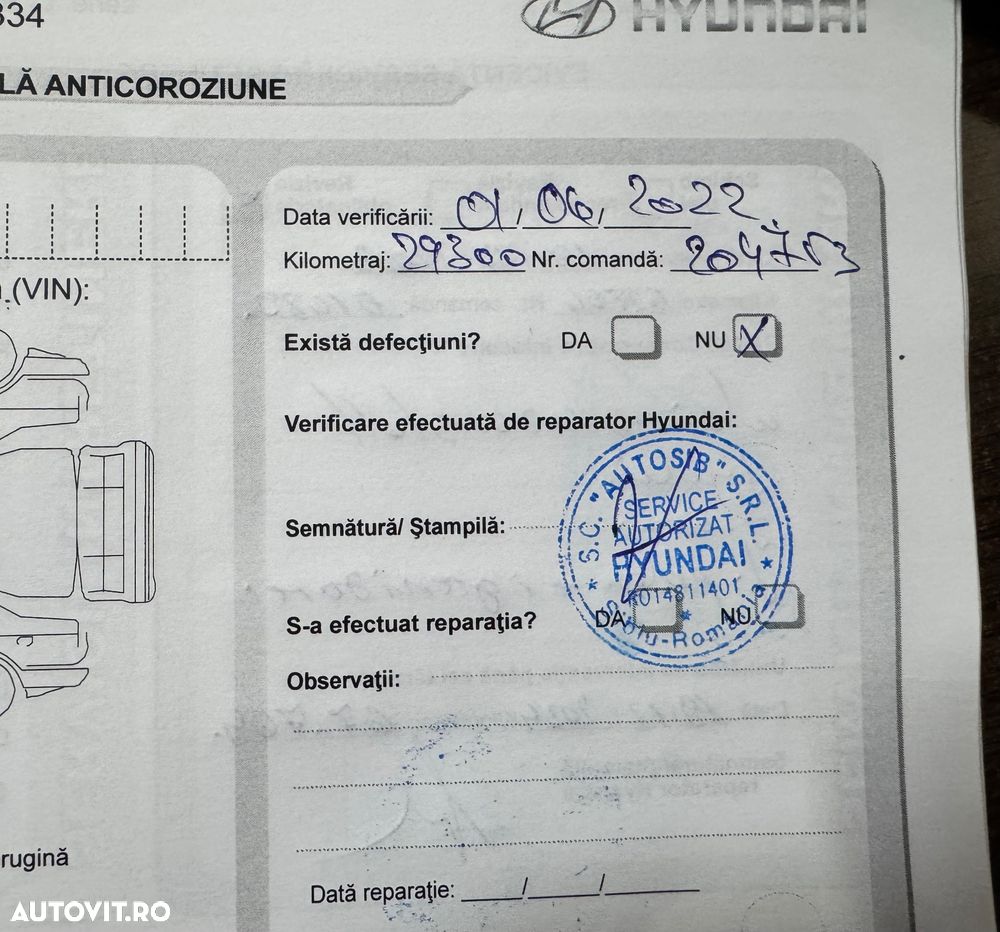 334
HYUNDAI
LĂ ANTICOROZIUNE
(VIN):
Data verificării: 01/06/2022
Kilometraj: 29300 Nr. comandă:
Există defecţiuni? DA NU X
Verificare efectuată de reparator Hyundai:
Semnătură/ Ştampilă:
S.C. "AUTOSIB" S.R.L.
SERVICE
AUTORIZAT
HYUNDAI
RO14811401
Sibiu-Romania
S-a efectuat reparaţia? DA NU
Observaţii:
rugină
Dată reparaţie: / /
AUTOVIT.RO